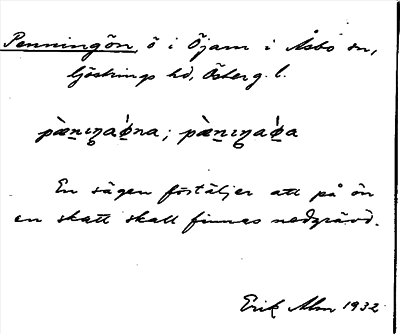 Penningön, ö i Öjaren i Åsbo sn,
Göstrings hd, Österg. l.
pæ̀nıŋaǿna; pæ̀nıŋaǿa
En sägen förtäljer att på ön
en skatt skall finnas nedgrävd.
Erik Alm 1932